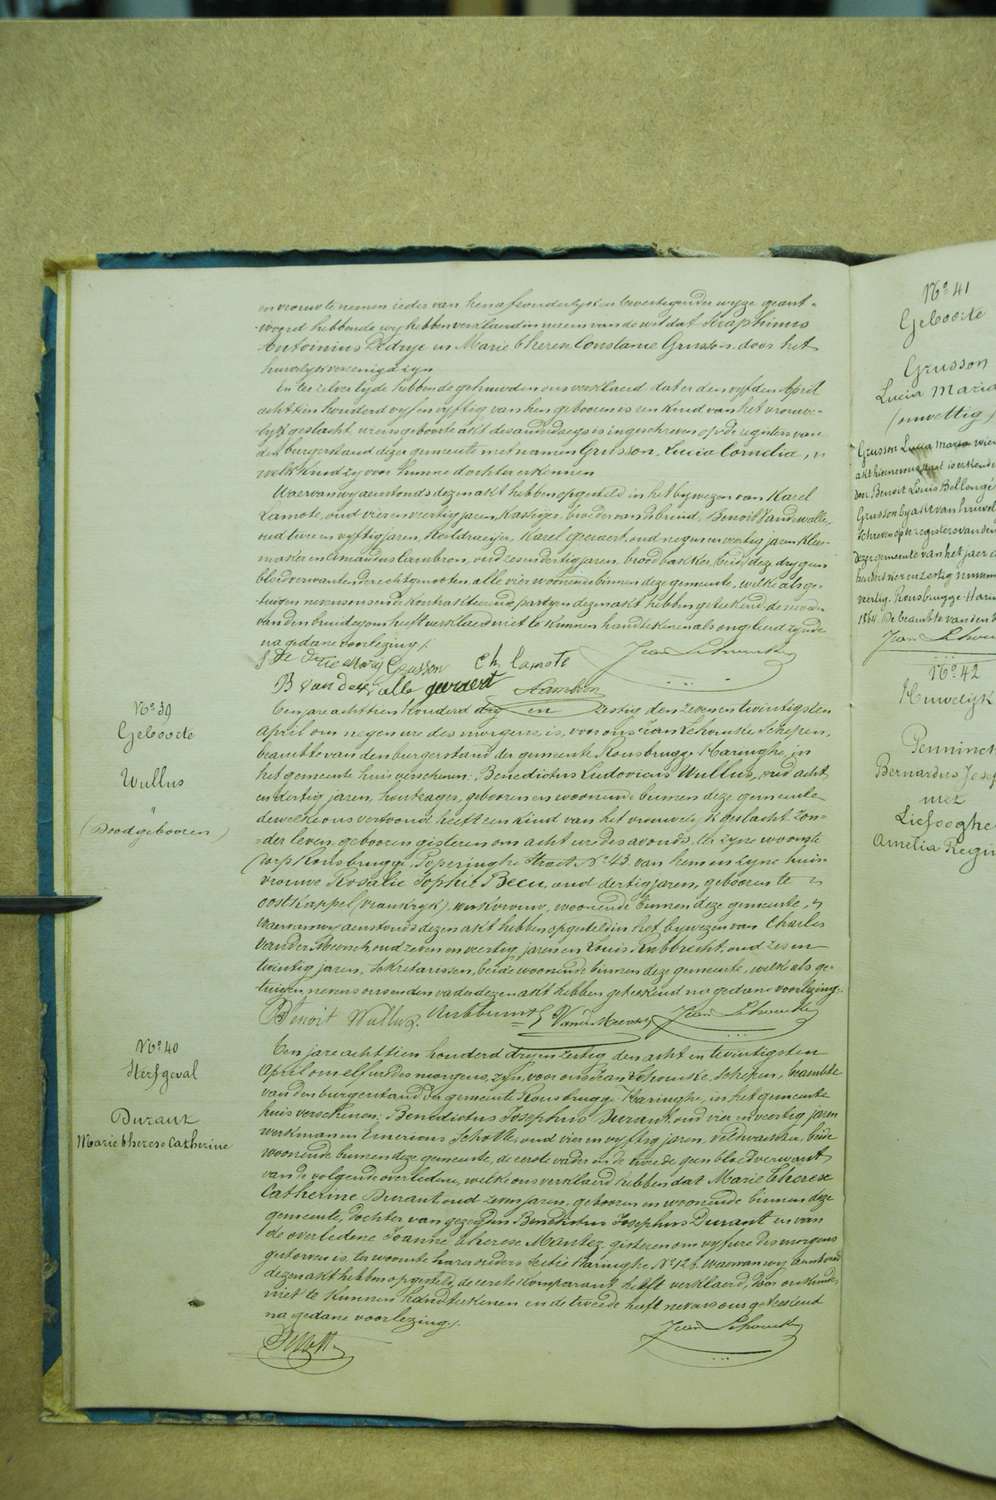 en vrouw te nemen ieder van hen afzonderlyk en bevestigender wyze geant-
-woord hebbende wy hebben verklaerd in naem van de wet dat Seraphinus
Antoinius Dedrye en Marie Therese Constance Grusson, door het
huwelyk vereenigd zyn
En ten zelven tyde hebben de gehuwden ons verklaerd dat er den vyfden April
achttien honderd vyf en vyftig van hen gebooren is een kind van het vrouwe-
lyk geslacht, wiens geboorte akt des anderdaegs is ingeschreven op de registers van
den burgerstand dezer gemeente met namen Grusson, Lucia Cornelia,
welk kind zy voor hunne dochter erkennen
Waervan wy aenstonds dezen akt hebben opgesteld in het bywezen van Karel
Lamote, oud vier en veertig jaren, broeder van de bruid, Benoit Vandewalle,
oud twee en vyftig jaren, Karel Gevaert, oud negen en veertig jaren, kleer-
maker en Amandus Cambron, oud zes en dertig jaren, broodbakker, beide dezer drij geen
bloedverwanten der echtgenooten, alle vier woonende binnen deze gemeente, welke als ge-
tuigen nevens ons en de kontrakteerende partyen dezen akt hebben geteekend, de moeder
van den bruidegom heeft verklaerd niet te kunnen handteekenen als ongeleerd zynde
na gedane voorlezing
S De Drie Mary Grusson Ch Lamote Jean Lehoucke
B Vandewalle gevaert Cambron
N° 39
Geboorte
Wullus
"
(Doodgebooren)
Ten jare achttien honderd dry en zestig den zeven en twintigsten
April om negen ure des morgens, is, voor ons Jean Lehoucke, Schepen,
beambte van den burgerstand der gemeente Rousbrugge-Haringhe, in
het gemeente huis verschenen, Benedictus Ludovicus Wullus, oud acht
en dertig jaren, houtzager, gebooren en woonende binnen deze gemeente
dewelke ons vertoond heeft een kind van het vrouwelyk geslacht, zon-
-der leven, gebooren gisteren om acht ure des avonds, ter zyne woonste
dorp Rousbrugge, Poperinghe straete N° 43 van hem en zyne huis-
vrouwe Rosalie Sophie Becu, oud dertig jaren, gebooren te
Oostkappel (Vrankryk), werkvrouw, woonende binnen deze gemeente,
Waervan wy aenstonds dezen akt hebben opgesteld in het bywezen van Charles
Van der Meersch, oud zeven en veertig jaren en Louis Rubbrecht, oud zes en
twintig jaren, Sekretarissen, beide woonende binnen deze gemeente, welke als ge-
tuigen nevens ons en den vader dezen akt hebben geteekend na gedane voorlezing.
Benoit Wullus. Rubbrecht L Vander Meersch Jean Lehoucke
N° 40
Sterfgeval
Durant
Marie Therese Catherine
Ten jare achttien honderd dry en zestig den acht en twintigsten
April om elf ure des morgens, zyn, voor ons Jean Lehoucke, Schepen, beambte
van den burgerstand der gemeente Rousbrugge Haringhe, in het gemeente
huis verschenen, Benedictus Josephus Durant, oud vier en veertig jaren
werkman en Emericus Schotte, oud vier en vyftig jaren, veldwachter, beide
woonende binnen deze gemeente, de eerste vader en de tweede geen bloedverwant
van de volgende overledene, welke ons verklaerd hebben dat Marie Therese
Catherine Durant oud zeven jaren, gebooren en woonende binnen deze
gemeente, dochter van gezegden Benedictus Josephus Durant en van
de overledene Joanne Therese Mantez, gisteren om vyf ure des morgens
gestorven is, ter woonste harer ouders Sectie Haringhe N° 126. Waervan wy aenstonds
dezen akt hebben opgesteld, de eerste komparant heeft verklaerd, door onkunde
niet te kunnen handteekenen en de tweede heeft nevens ons geteekend
na gedane voorlezing
Schotte Jean Lehoucke
N° 41
Geboorte
Grusson
Lucia Maria
(onwettig)
N° 42
Huwelyk
Penninck
Bernardus Josep
met
Liefooghe
Amelia Regin